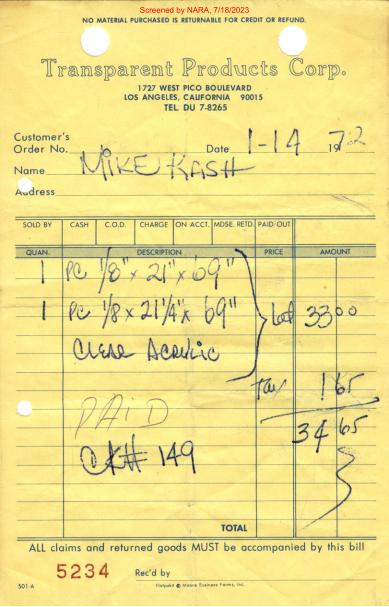 Screened by NARA, 7/18/2023
NO MATERIAL PURCHASED IS RETURNABLE FOR CREDIT OR REFUND.
Transparent Products Corp.
1727 WEST PICO BOULEVARD
LOS ANGELES, CALIFORNIA 90015
TEL. DU 7-8265
Customer's
Order No. Date 1-14 1972
Name MIKE KASH
Address
SOLD BY CASH C.O.D. CHARGE ON ACCT. MDSE. RETD. PAID OUT
QUAN. DESCRIPTION PRICE AMOUNT
1 PC 1/8" x 21" x 69"
1 PC 1/8 x 21 1/4" x 69" Lot 33 00
Clear Acrylic
Tax 1 65
PAID 34 65
CK# 149
TOTAL
ALL claims and returned goods MUST be accompanied by this bill
5234 Rec'd by
501-A Flatpakit © Moore Business Forms, Inc.